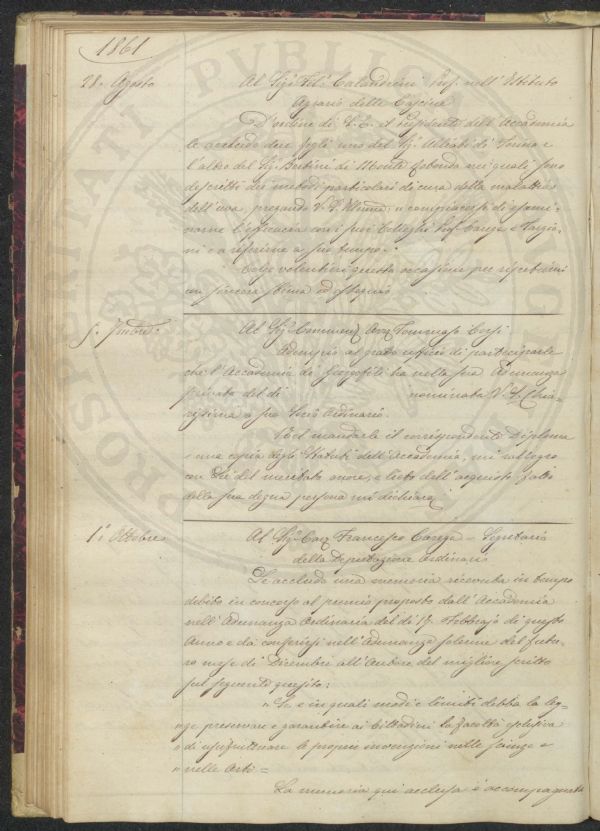 1861
28. Agosto
Al Sigr Fil. Calandrini Prof. nell' Istituto
Agrario delle Cascine
D'ordine di S. E. il Presidente dell' Accademia
le accludo due fogli uno del Sig. di Torino e
l'altro del Sig. Bertini di nei quali sono
descritti dei metodi particolari di cura della malattia
dell' uva, pregando V. S. Illma a compiacersi di esami-
narne l'efficacia con i suoi Colleghi Prof. Carega e Targio-
ni e a riferirne a suo tempo.
Colgo volentieri questa occasione per ripetermi
con sincera stima ed ossequio
Al Sigr Commend. Avv. Tommaso Corsi
Adempio al grato ufficio di parteciparle
che l'Accademia dei Georgofili ha nella sua Adunanza
privata del dì nominata V. S. Chia-
rissima a suo Socio Ordinario.
Nel mandarle il corrispondente Diploma
e una copia degli Statuti dell' Accademia, mi rallegro
con Lei del meritato onore, e lieto dell' acquisto fatto
della sua degna persona mi dichiaro
1° Ottobre
Al Sigr Cav. Francesco Carega - Segretario
della Deputazione Ordinaria
Le accludo una memoria ricevuta in tempo
debito in concorso al premio proposto dall' Accademia
nell' Adunanza Ordinaria del dì 17 Febbrajo di questo
Anno e da conferirsi nell' Adunanza solenne del futu-
ro mese di Dicembre all' Autore del migliore scritto
sul seguente quesito:
" Se e in quali modi e limiti debba la leg-
" ge preservare e garantire ai Cittadini la facoltà esclusiva
" di usufruttuare le proprie invenzioni nelle scienze e
" nelle Arti =
La memoria qui acclusa è accompagnata